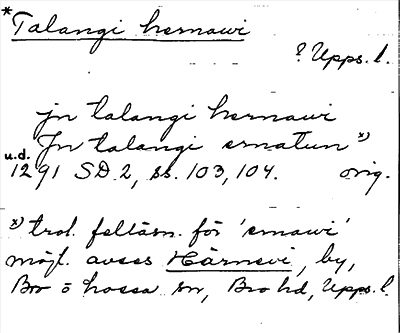 *Talangi hernawi
? Upps. l.
jn talangi hernawi
Jn talangi ernatun x)
u.d.
1291 SD 2, ss. 103, 104. orig.
x) trol. felläsn. för 'ernawi'
möjl. avses Härnevi, by,
Bro o Lossa sn, Bro hd, Upps. l.